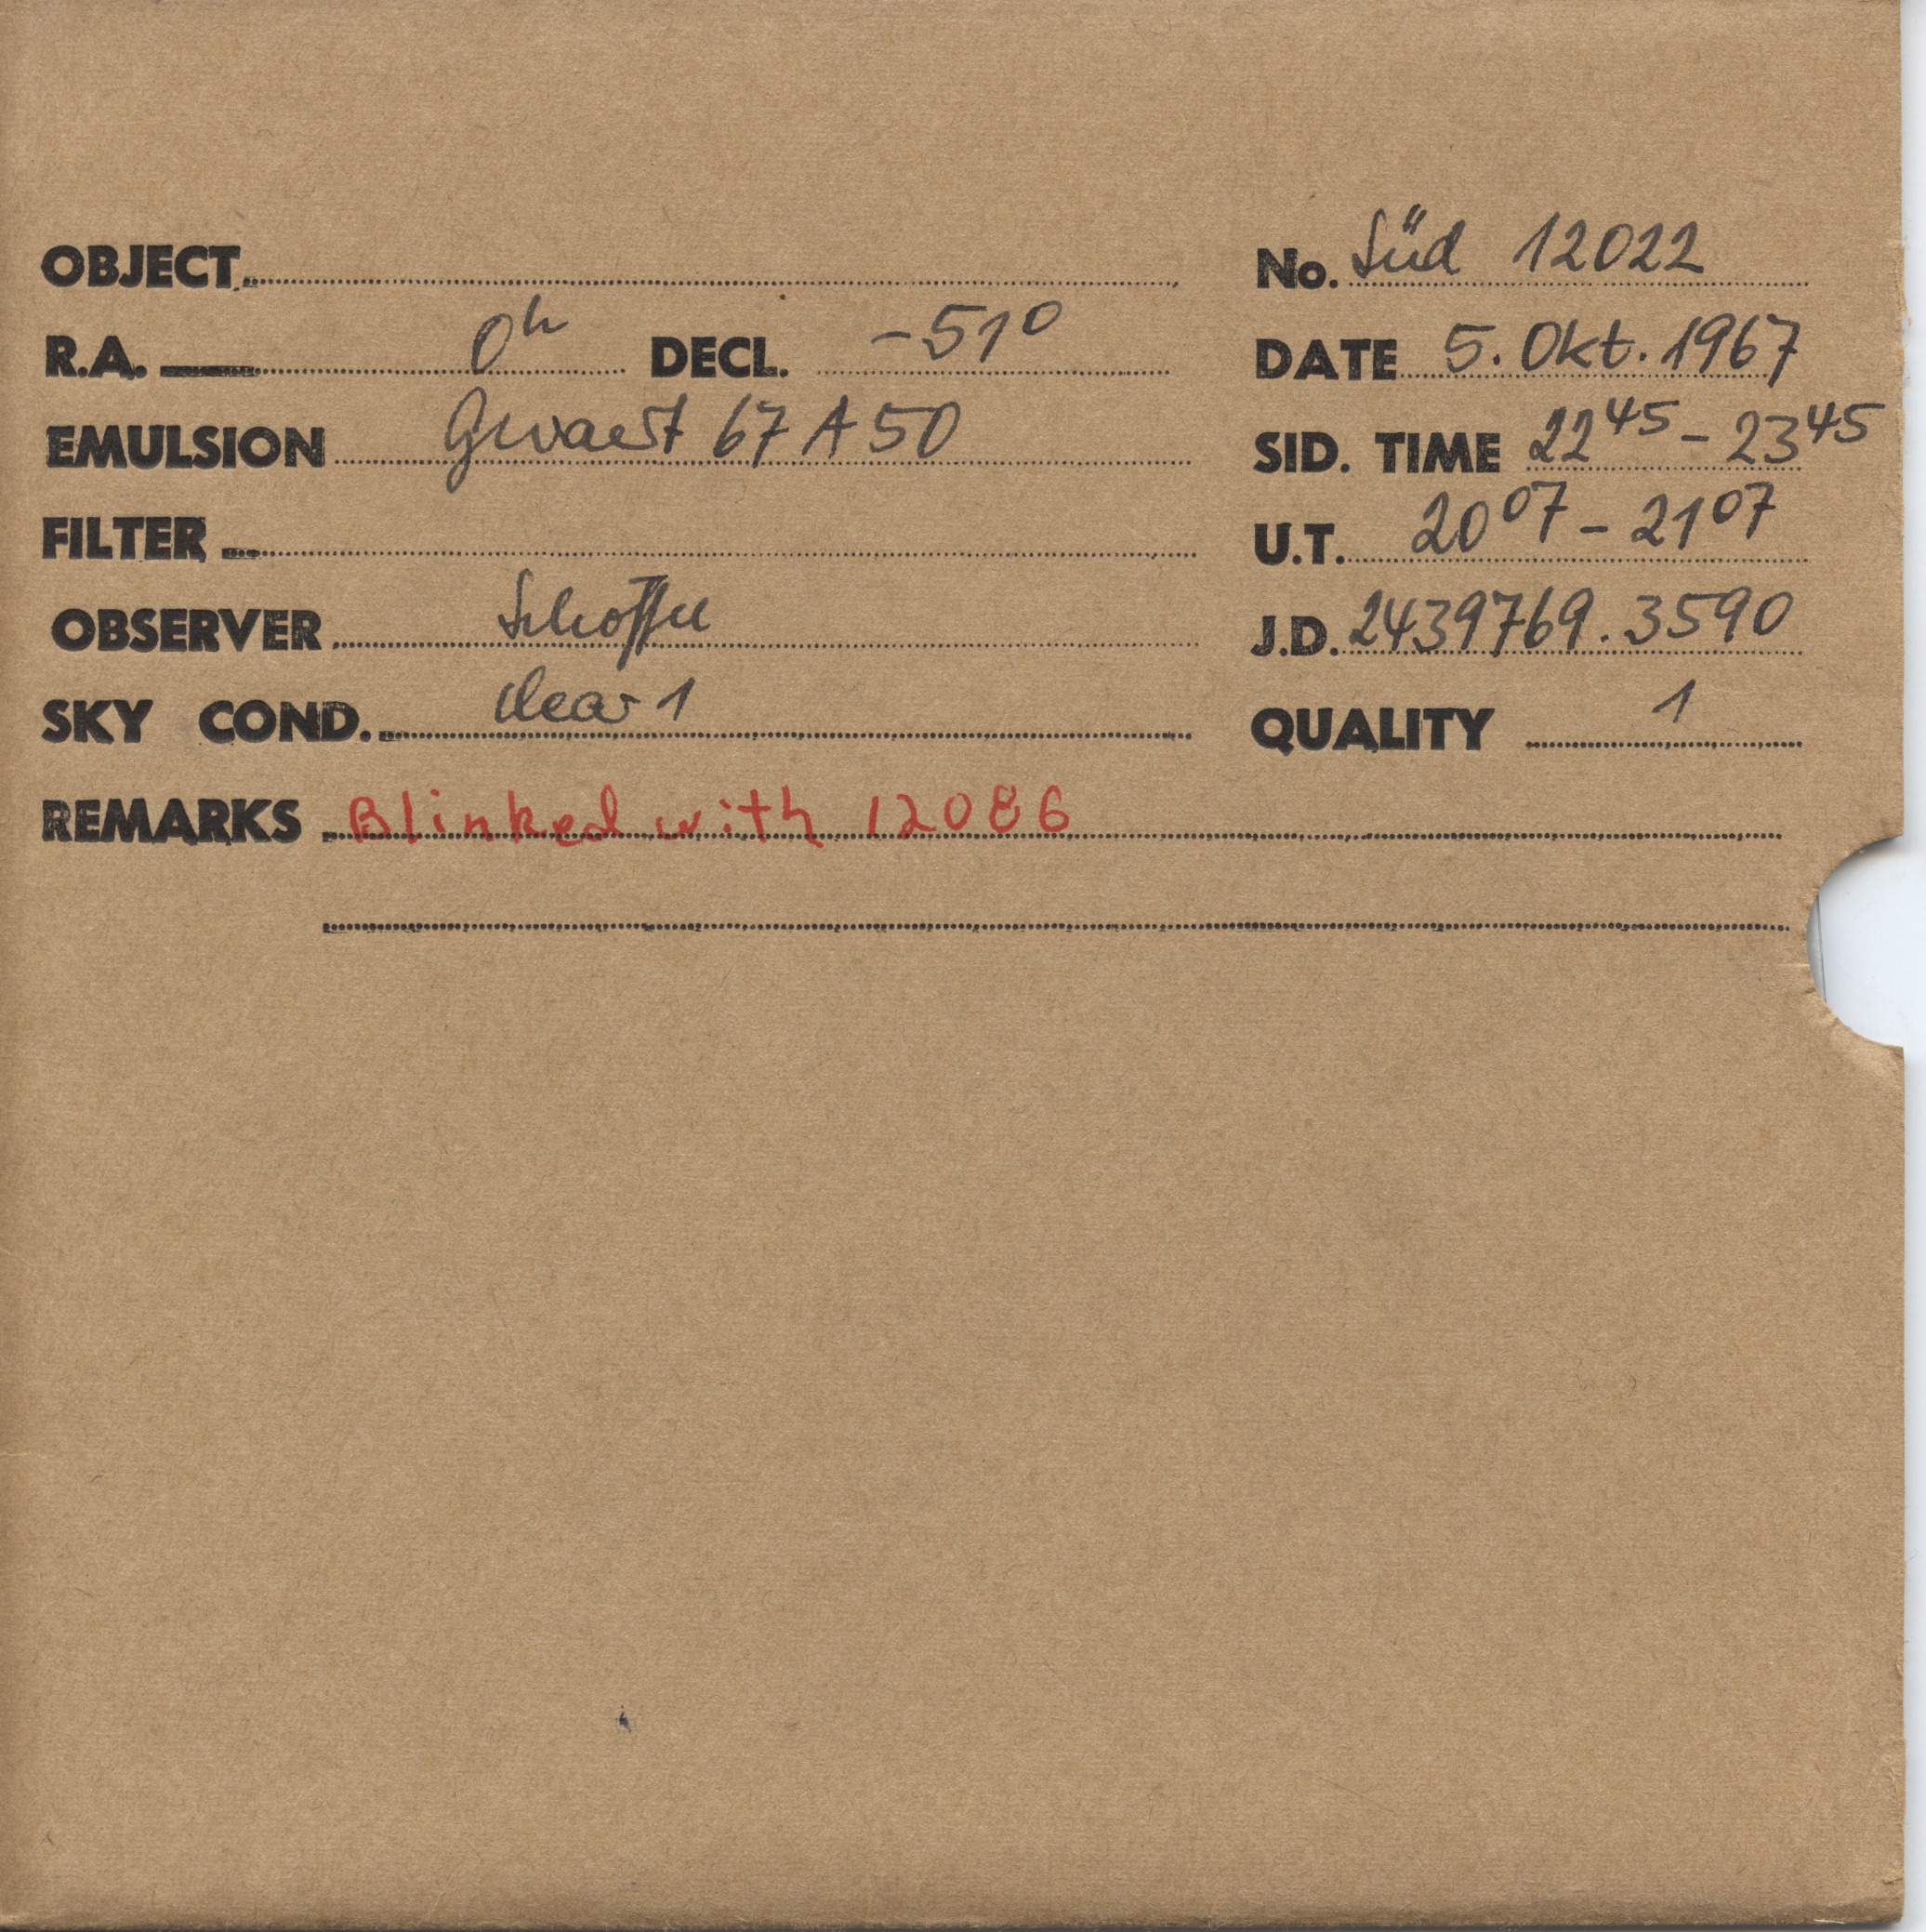 OBJECT
No. Süd 12022
R.A. 0h DECL. -51°
DATE 5. Okt. 1967
EMULSION Gevaert 67 A 50
SID. TIME 22 45 - 23 45
FILTER
U.T. 20 07 - 21 07
OBSERVER
J.D. 2439769.3590
SKY COND. clear 1
QUALITY 1
REMARKS Blinked with 12086